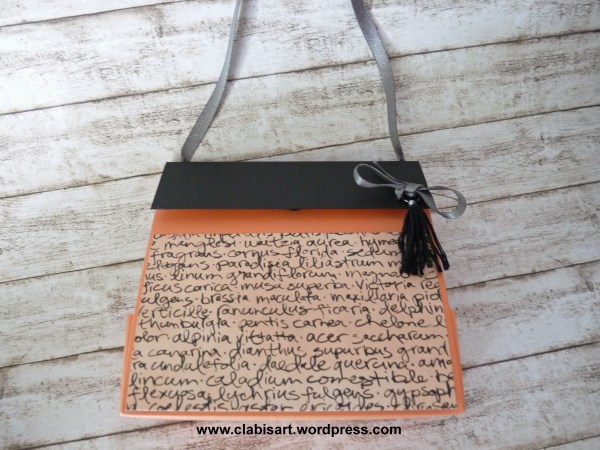 menglesi. waitzia aurea. humu
fragrans. cornus florida. sedum
elegans. paradisea liliastrum m
us. linum grandiflorum. magno
ficus carica. musa superba. Victoria reg
ulgens. brassia maculata. maxillaria pic
verticille. ranunculus ficaria. delphin
thumbulata. pentis carnea. chelone l
olor. alpinia. acer saccharum
a canarina. dianthus superbus grant
ra undulefolia. daedale querana. amo
lincum. caladium comestible.
flexuosa. lychrius fulgens. gypsoph
www.clabisart.wordpress.com